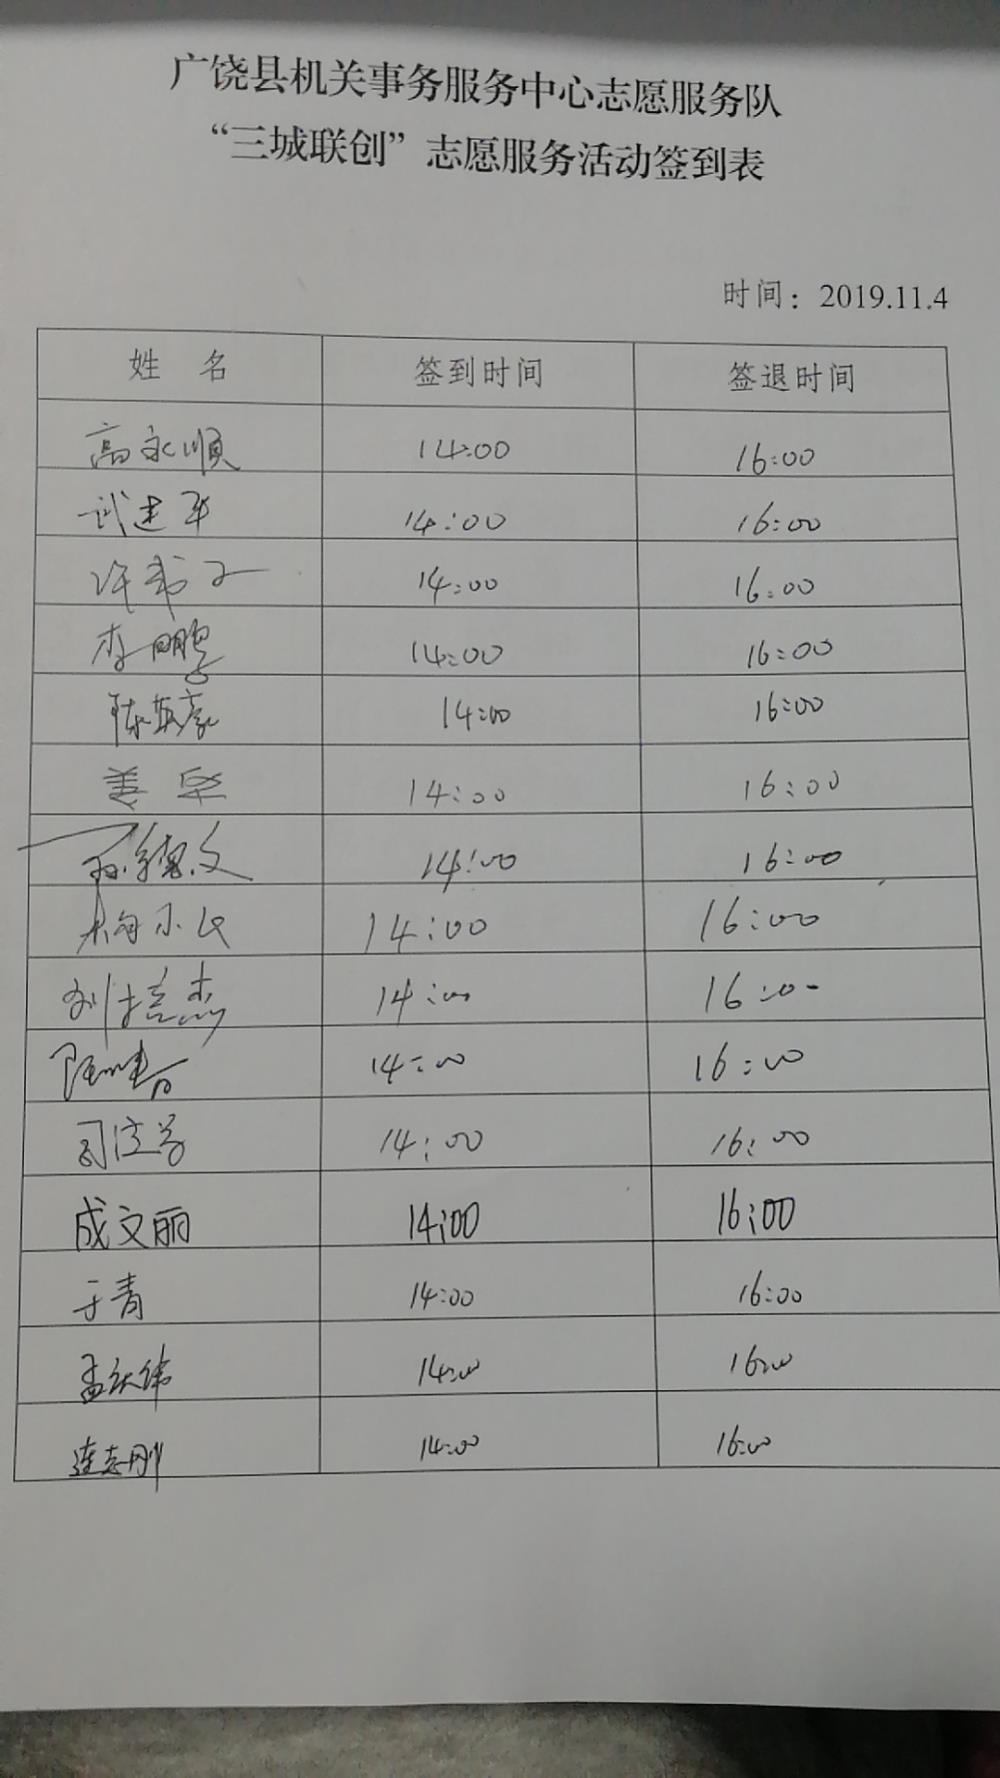 广饶县机关事务服务中心志愿服务队
“三城联创”志愿服务活动签到表
时间：2019.11.4
姓 名 签到时间 签退时间
高永顺 14:00 16:00
武建军 14:00 16:00
14:00 16:00
李鹏 14:00 16:00
陈英豪 14:00 16:00
14:00 16:00
孙德文 14:00 16:00
14:00 16:00
刘培杰 14:00 16:00
14:00 16:00
14:00 16:00
成文丽 14:00 16:00
于青 14:00 16:00
孟庆伟 14:00 16:00
连志刚 14:00 16:00